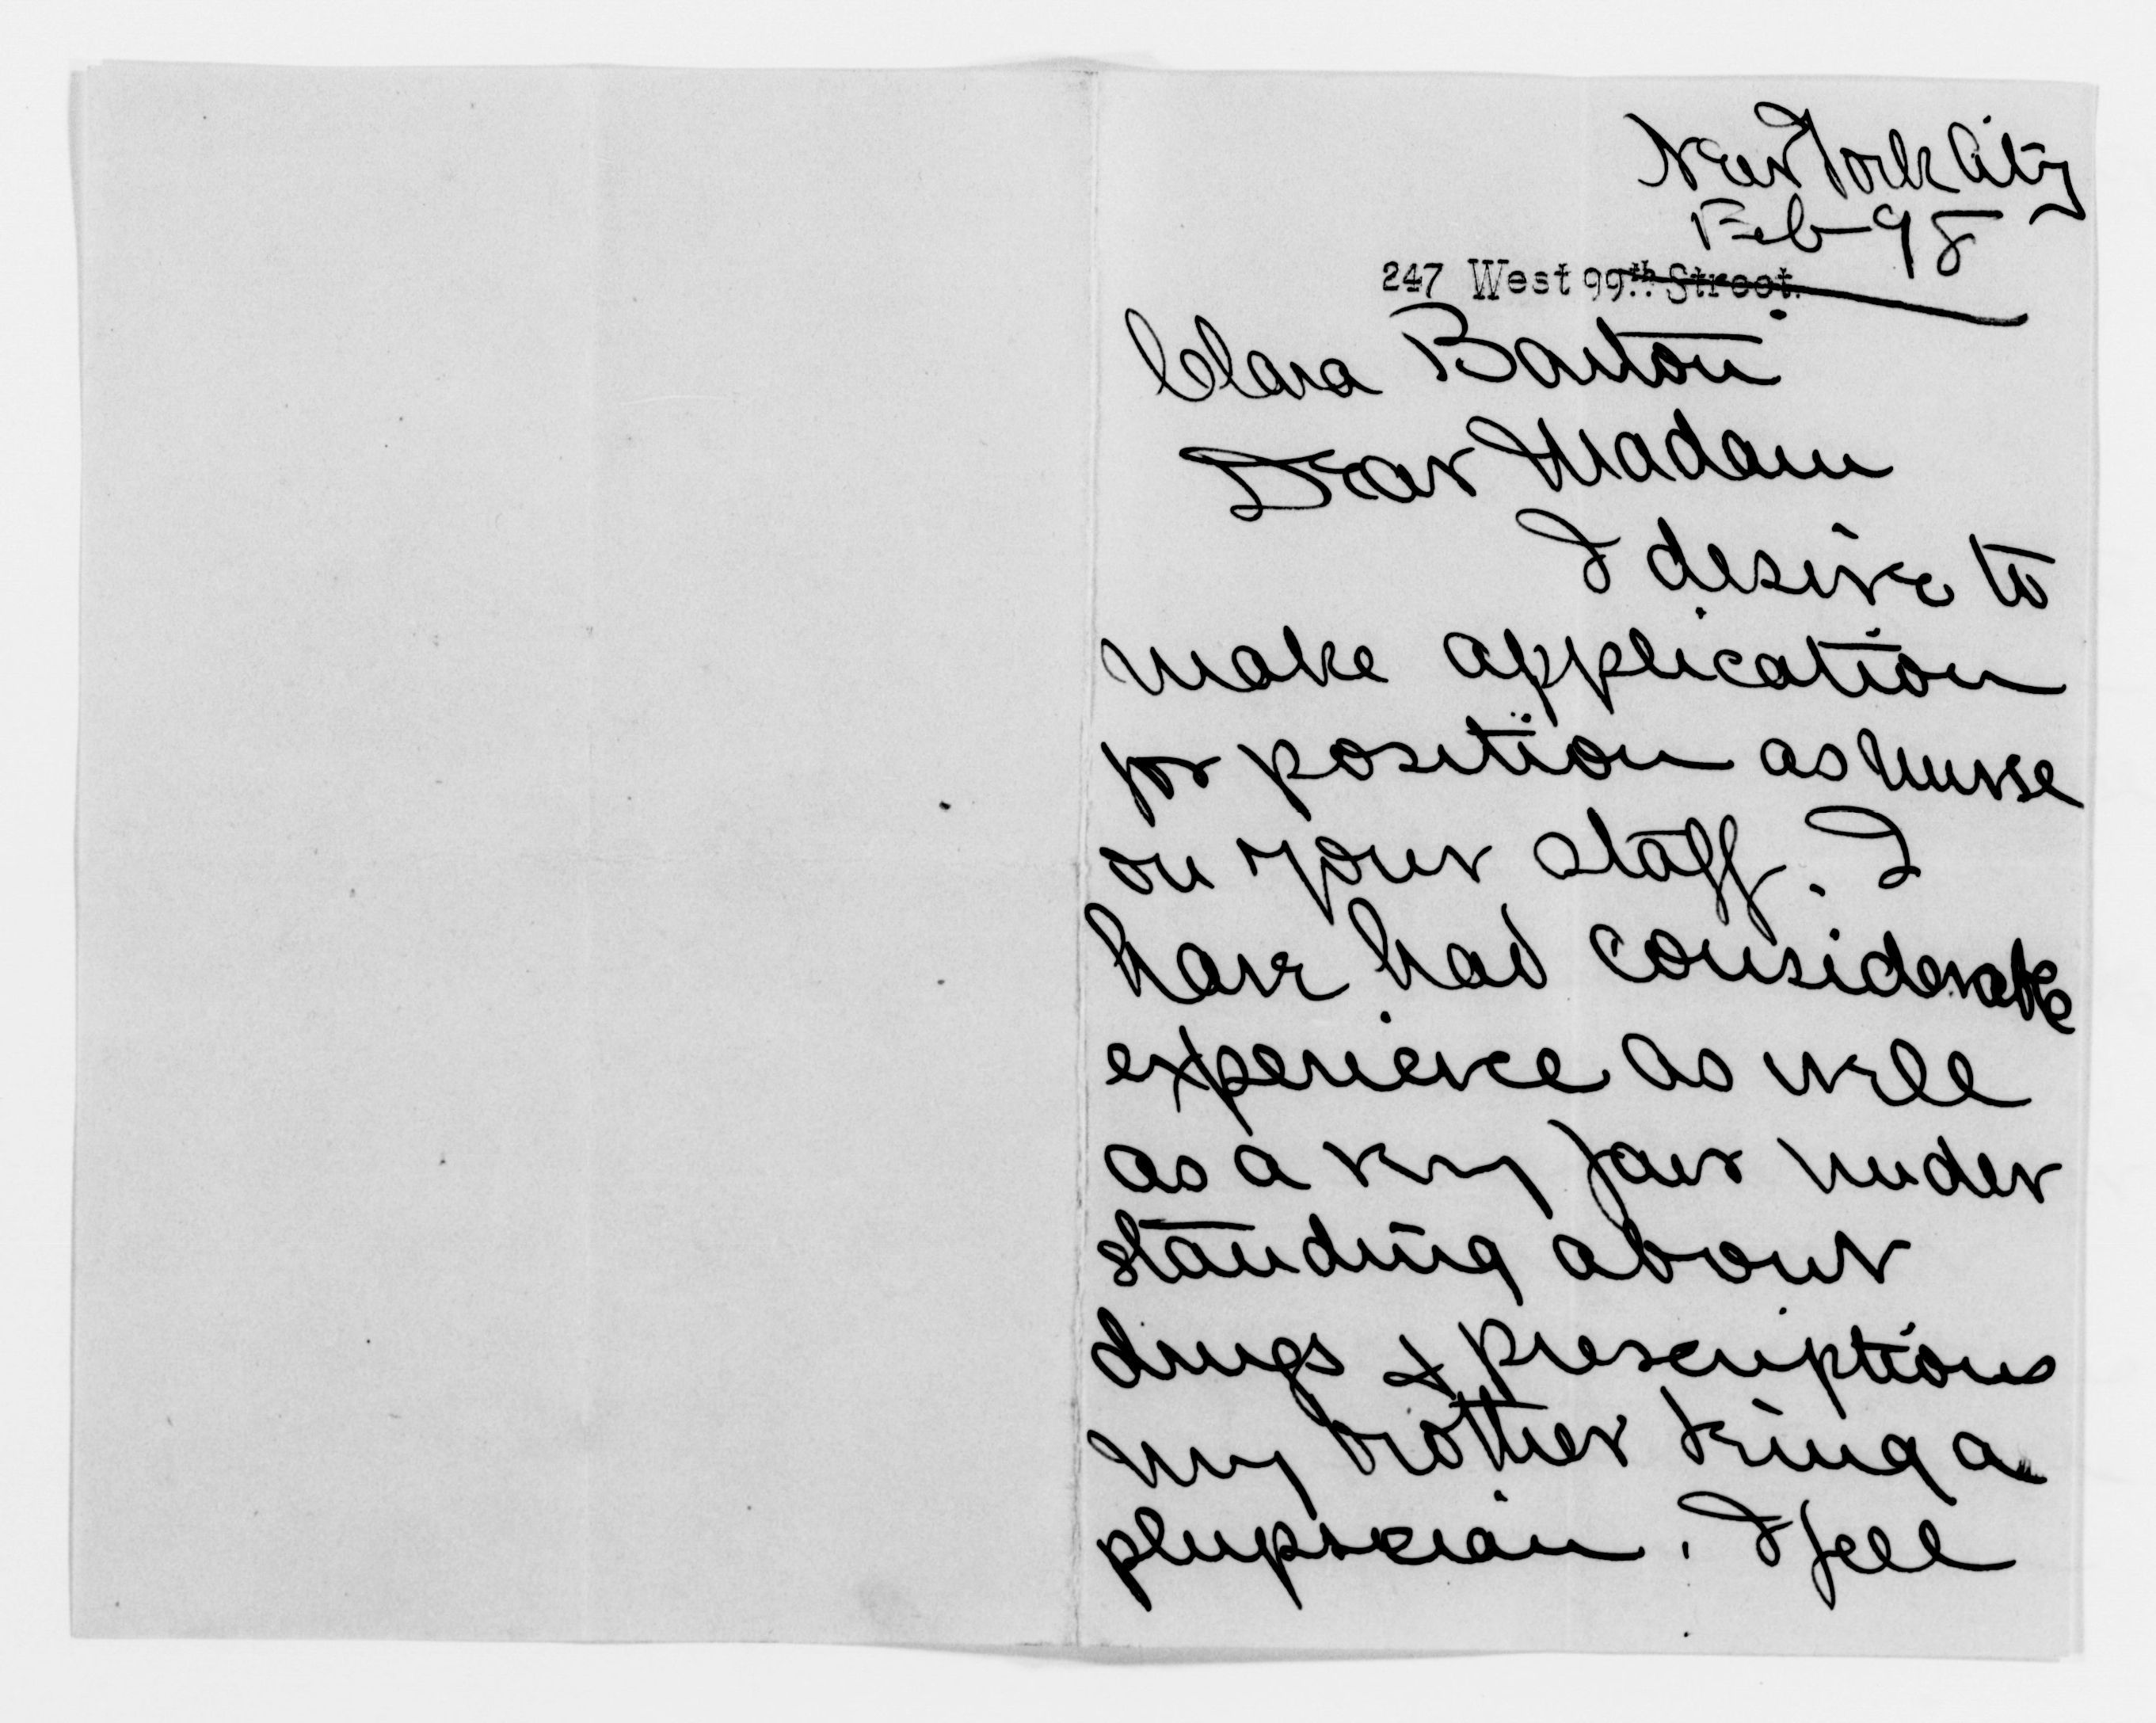 New York City
Feb - 98
247 West 99th Street.
Clara Barton
Dear Madam
I desire to
make application
for position as nurse
on your staff. I
have had considerable
experience as well
as a very fair under
standing about
drugs & prescriptions
my brother being a
physician. I feel